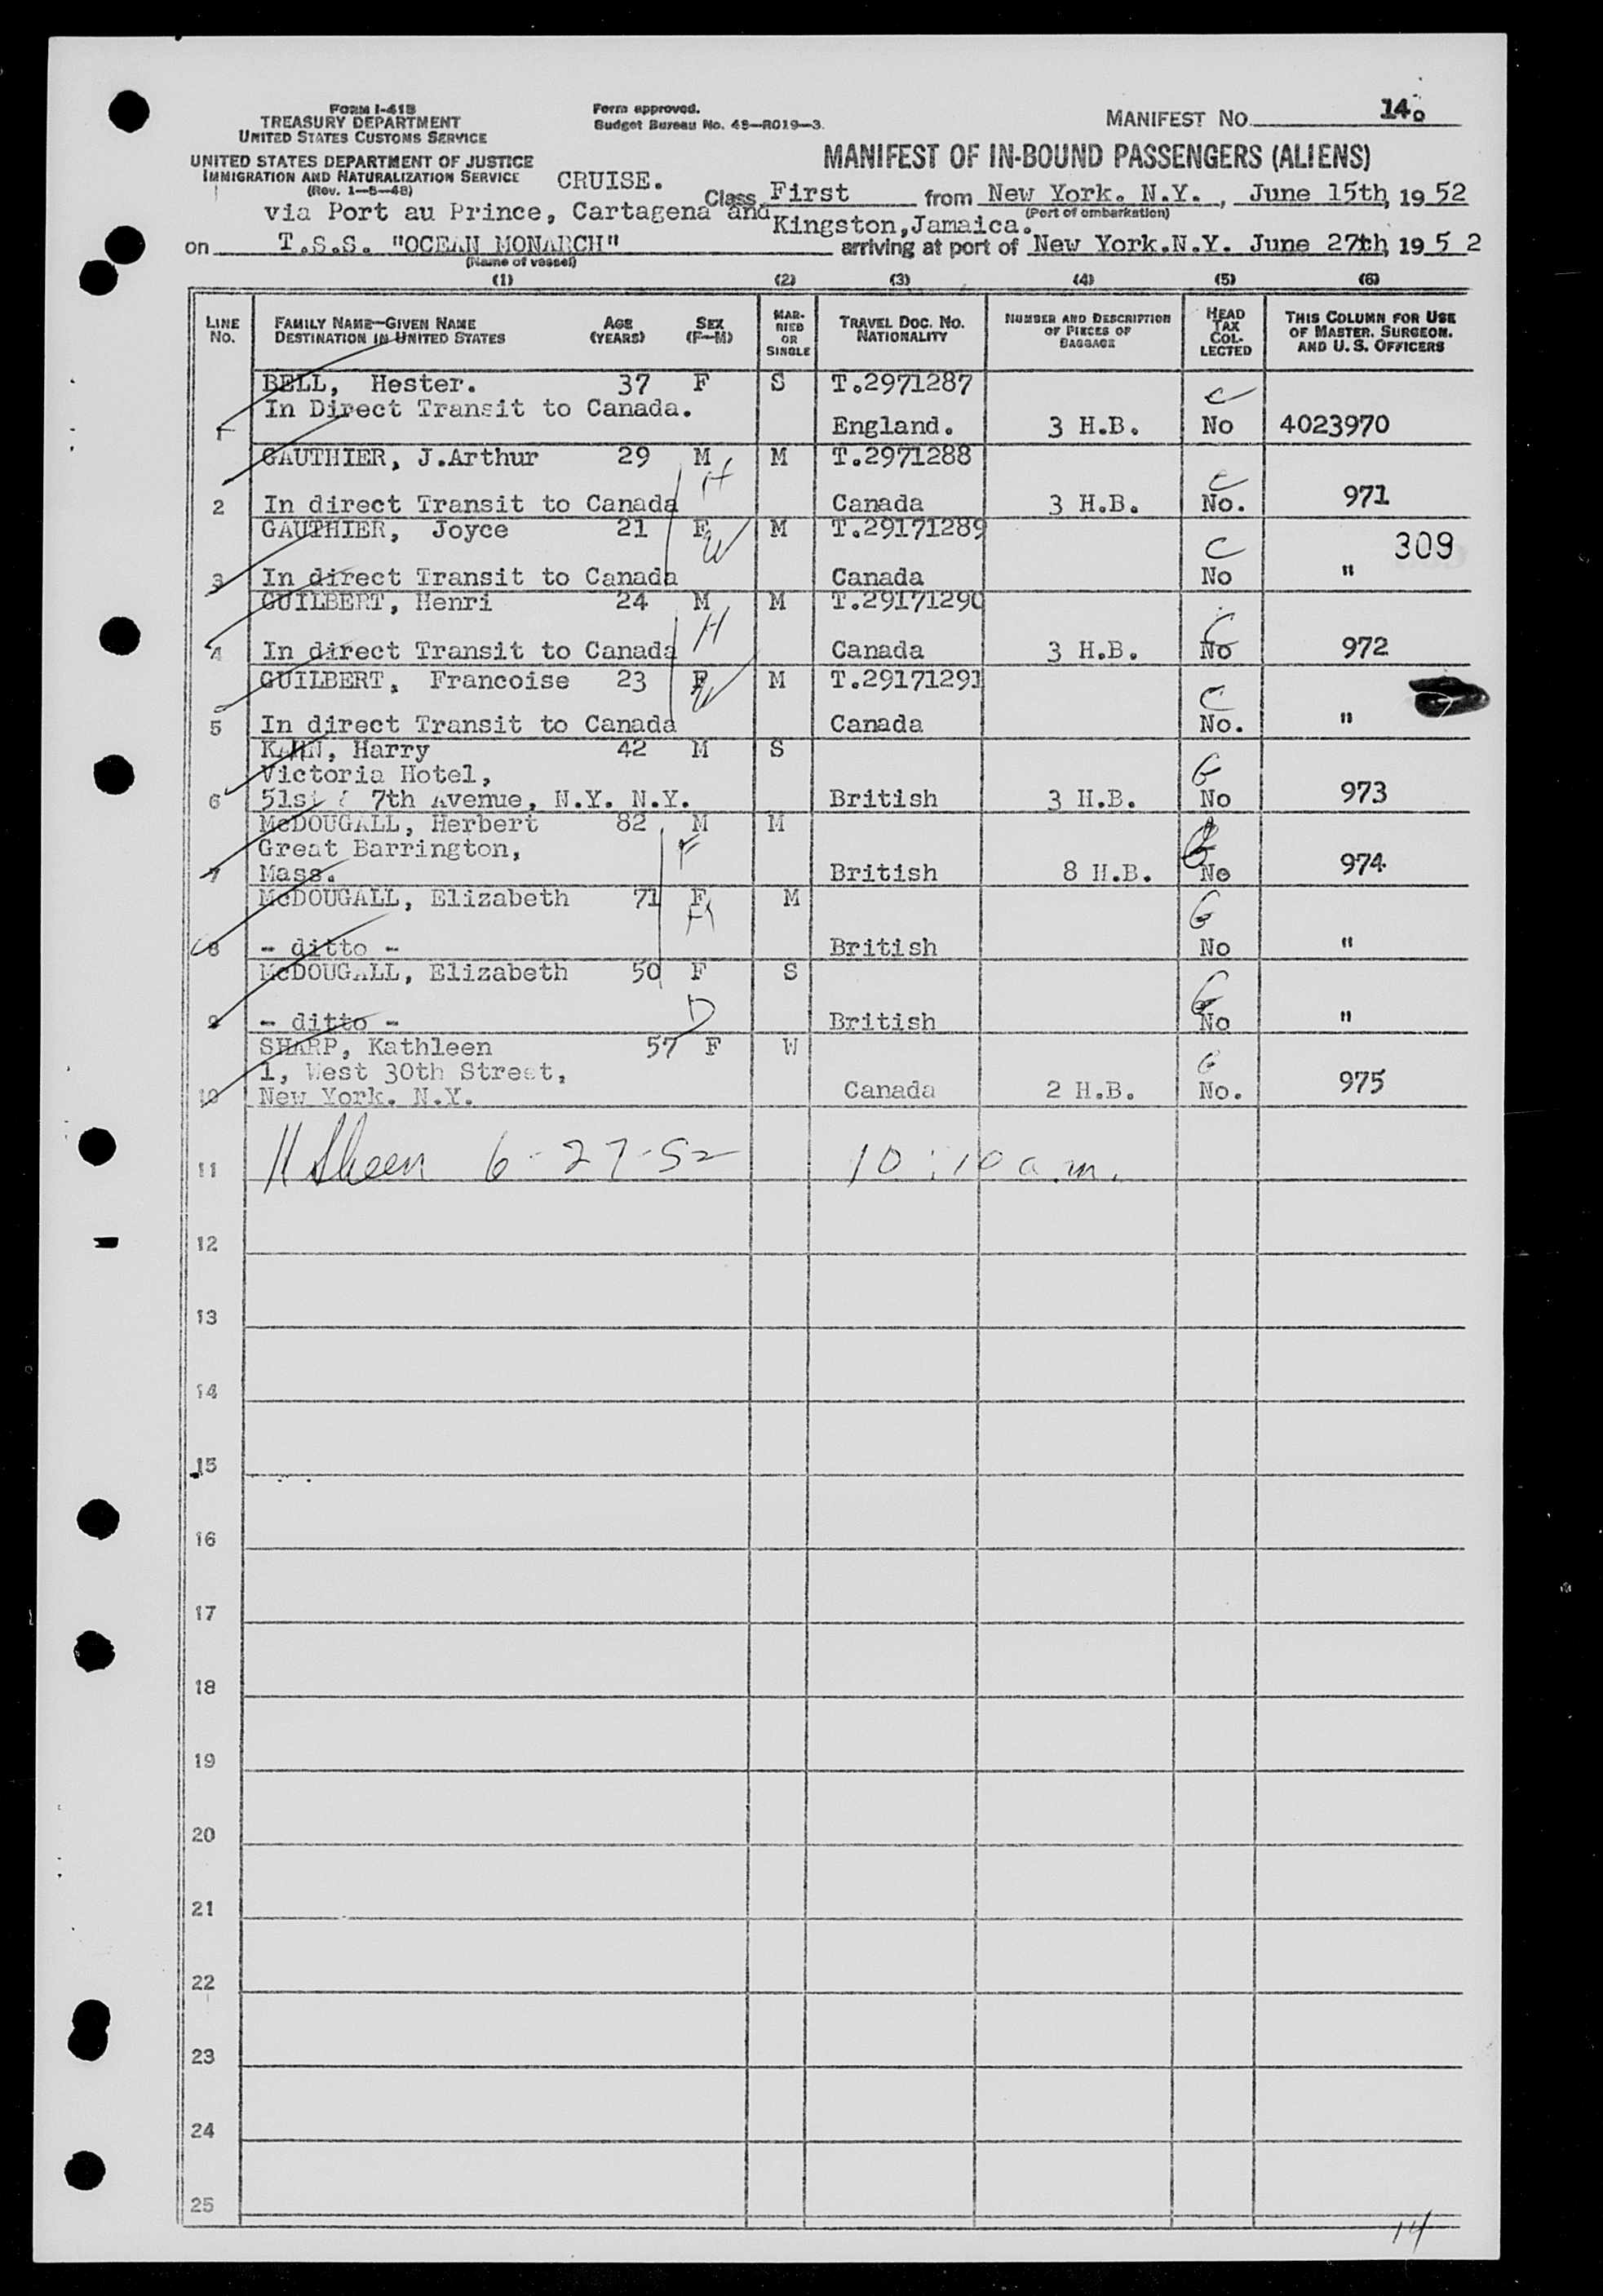 FORM I-415
TREASURY DEPARTMENT
UNITED STATES CUSTOMS SERVICE
UNITED STATES DEPARTMENT OF JUSTICE
IMMIGRATION AND NATURALIZATION SERVICE
(Rev. 1-5-48)
Form approved.
Budget Bureau No. 43-R019-3.
MANIFEST NO. 14
MANIFEST OF IN-BOUND PASSENGERS (ALIENS)
CRUISE.
Class First from New York. N.Y., June 15th, 1952
(Port of embarkation)
via Port au Prince, Cartagena and Kingston, Jamaica.
on T.S.S. "OCEAN MONARCH" arriving at port of New York.N.Y. June 27th, 1952
(Name of vessel)
(1) (2) (3) (4) (5) (6)
LINE NO. FAMILY NAME—GIVEN NAME DESTINATION IN UNITED STATES AGE (YEARS) SEX (F—M) MARRIED OR SINGLE TRAVEL DOC. NO. NATIONALITY NUMBER AND DESCRIPTION OF PIECES OF BAGGAGE HEAD TAX COLLECTED THIS COLUMN FOR USE OF MASTER, SURGEON, AND U. S. OFFICERS
BELL, Hester. 37 F S T.2971287
In Direct Transit to Canada. C
1 England. 3 H.B. No 4023970
GAUTHIER, J.Arthur 29 M M T.2971288
H C
2 In direct Transit to Canada Canada 3 H.B. No. 971
GAUTHIER, Joyce 21 F M T.29171289
W C 309
3 In direct Transit to Canada Canada No "
GUILBERT, Henri 24 M M T.29171290
H C
4 In direct Transit to Canada Canada 3 H.B. No 972
GUILBERT, Francoise 23 F M T.29171291
W C
5 In direct Transit to Canada Canada No. "
KAHN, Harry 42 M S
Victoria Hotel, G
6 51st & 7th Avenue, N.Y. N.Y. British 3 H.B. No 973
McDOUGALL, Herbert 82 M M
Great Barrington, F
7 Mass. British 8 H.B. No 974
McDOUGALL, Elizabeth 71 F M
M G
8 - ditto - British No "
McDOUGALL, Elizabeth 50 F S
D G
9 - ditto - British No "
SHARP, Kathleen 57 F W
1, West 30th Street, G
10 New York. N.Y. Canada 2 H.B. No. 975
11 H Sheen 6-27-52 10:10 a.m.
12
13
14
15
16
17
18
19
20
21
22
23
24
25
14